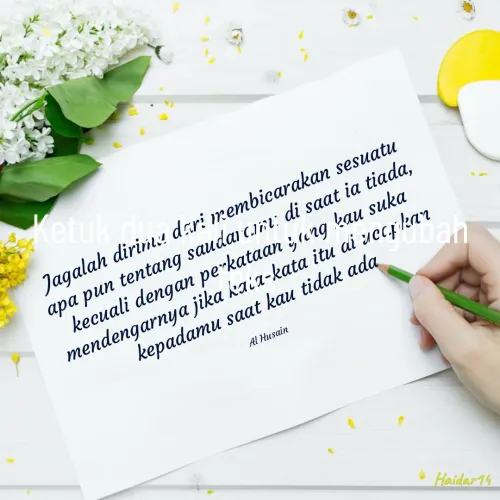 Jagalah dirimu dari membicarakan sesuatu
apa pun tentang saudaramu di saat ia tiada,
kecuali dengan perkataan yang kau suka
mendengarnya jika kata-kata itu di ucapkan
kepadamu saat kau tidak ada
Al Husain
Ketuk dua kali untuk mengubah
teks
Haidar14